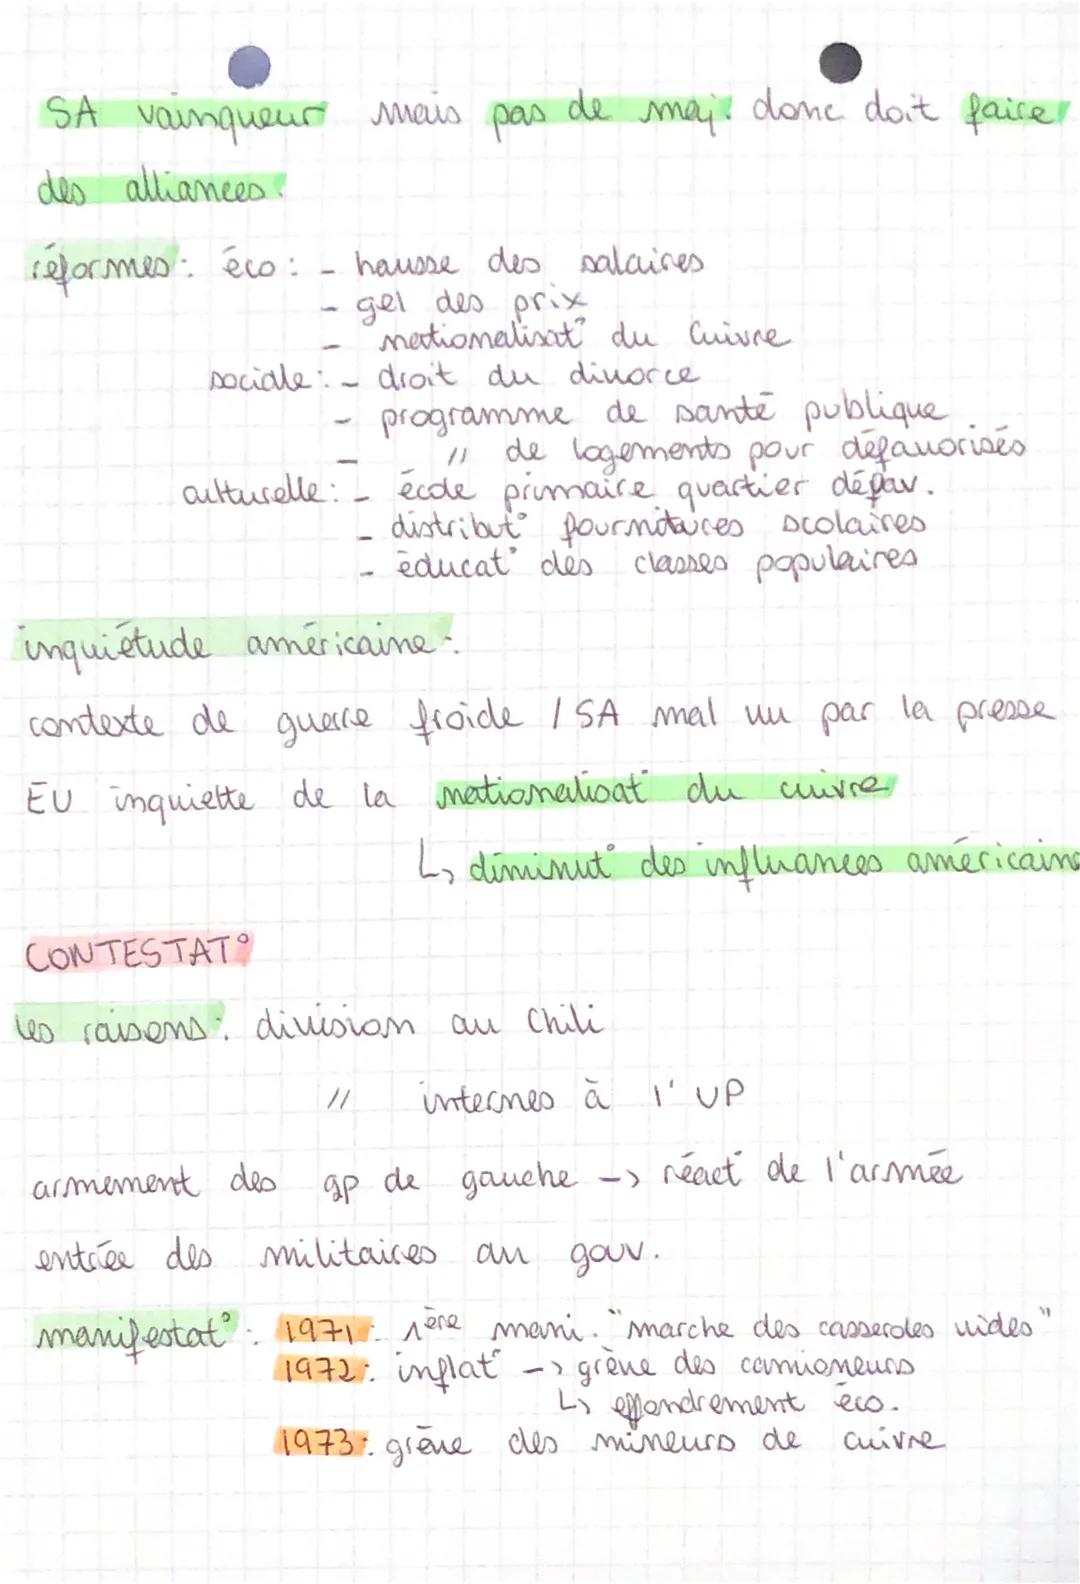 SA vainqueur mais pas de maj. donc doit faire
des alliances.
réformes : éco : - hausse des salaires
- gel des prix
- nationalisat° du Cuivre
sociale : - droit du divorce
- programme de santé publique
- " de logements pour défavorisés
culturelle : - école primaire quartier défav.
- distribut° fournitures scolaires
- éducat° des classes populaires
inquiétude américaine :
contexte de guerre froide / SA mal vu par la presse
EU inquiette de la nationalisat° du cuivre
↳ diminut° des influances américaine
CONTESTAT°
les raisons : division au Chili
" internes à l'UP
armement des gp de gauche -> réact° de l'armée
entrée des militaires au gouv.
manifestat° : 1971 : 1ère mani. "marche des casseroles vides"
1972 : inflat° -> grève des camioneurs
↳ effondrement éco.
1973 : grève des mineurs de cuivre